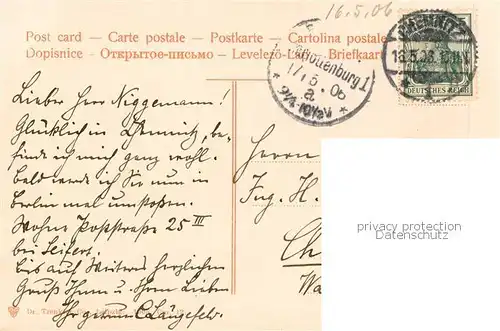 16.5.06
Post card — Carte postale — Postkarte — Cartolina postale
Dopisnice - Открытое-письмо - Levelező-L Briefkaart
CHEMNITZ
16.5.06
DEUTSCHES REICH
Charlottenburg 1
17.5.06
a.
9¼-10½V
Lieber Herr Niggemann!
Glücklich in Chemnitz, be-
finde ich mich ganz wohl.
Bald werde ich Sie nun in
Berlin mal umstoßen.
Wohne Poststraße 25 III
bei Seifert.
Bis auf Weiteres herzlichen
Gruß Ihnen u. Ihrem Lieben
Ihr
Herrn
Ing. H.
Ch
Wa
privacy protection
Datenschutz
Dr.